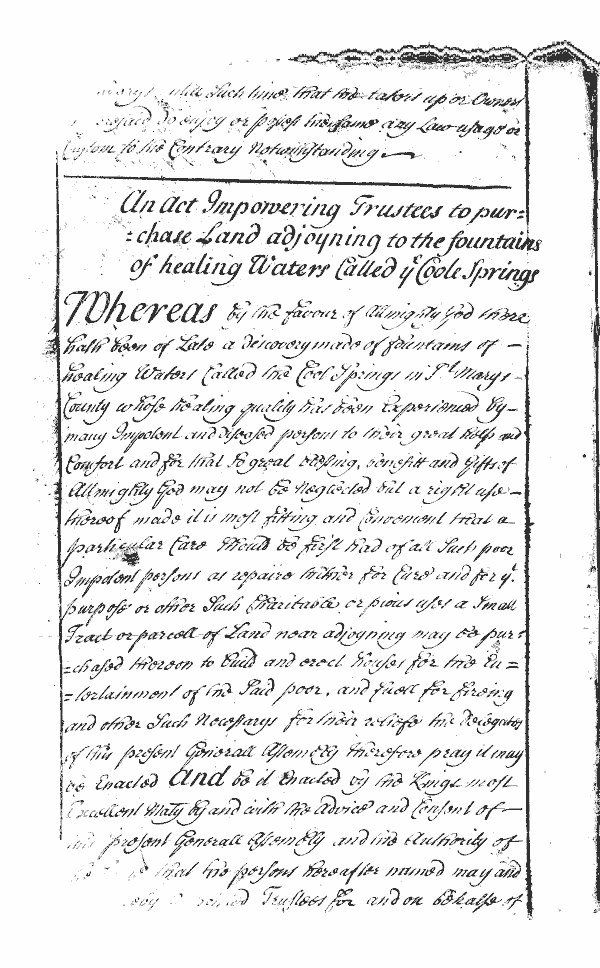 until Such time that the takers up or Owners
do enjoy or posess the same any Law usage or
Custom to the Contrary Notwithstanding
An Act Impowering Trustees to pur=
=chase Land adjoyning to the fountains
of healing Waters Called yͤ Coole Springs
Whereas by the favour of Almighty God there
hath been of Late a discovery made of fountains of –
healing Waters Called the Cool Springs in Sᵗ Marys –
County whose healing quality has been Experienced by –
many Impotent and diseased persons to their great help and
Comfort and for that So great blessing, benefitt and Gift of
Almighty God may not be Neglected but a right use –
thereof made it is most fitting and Convenient that a
particular Care Should be first had of all Such poor
Impotent persons as repaire thither for Cure and for yͤ.
purpose or other Such Charitable or pious uses a Small
Tract or parcell of Land near adjoyning may be pur=
=chased thereon to build and erect houses for the En=
=tertainment of the Said poor, and fuell for fireing
and other Such Necessarys for their reliefe the Delegates
of this present Generall Assembly therefore pray it may
be Enacted And be it Enacted by the Kings most
Excellent Maty by and with the Advice and Consent of –
this present Generall Assembly and the Authority of
that the persons hereafter named may and
Trustees for and on behalfe of